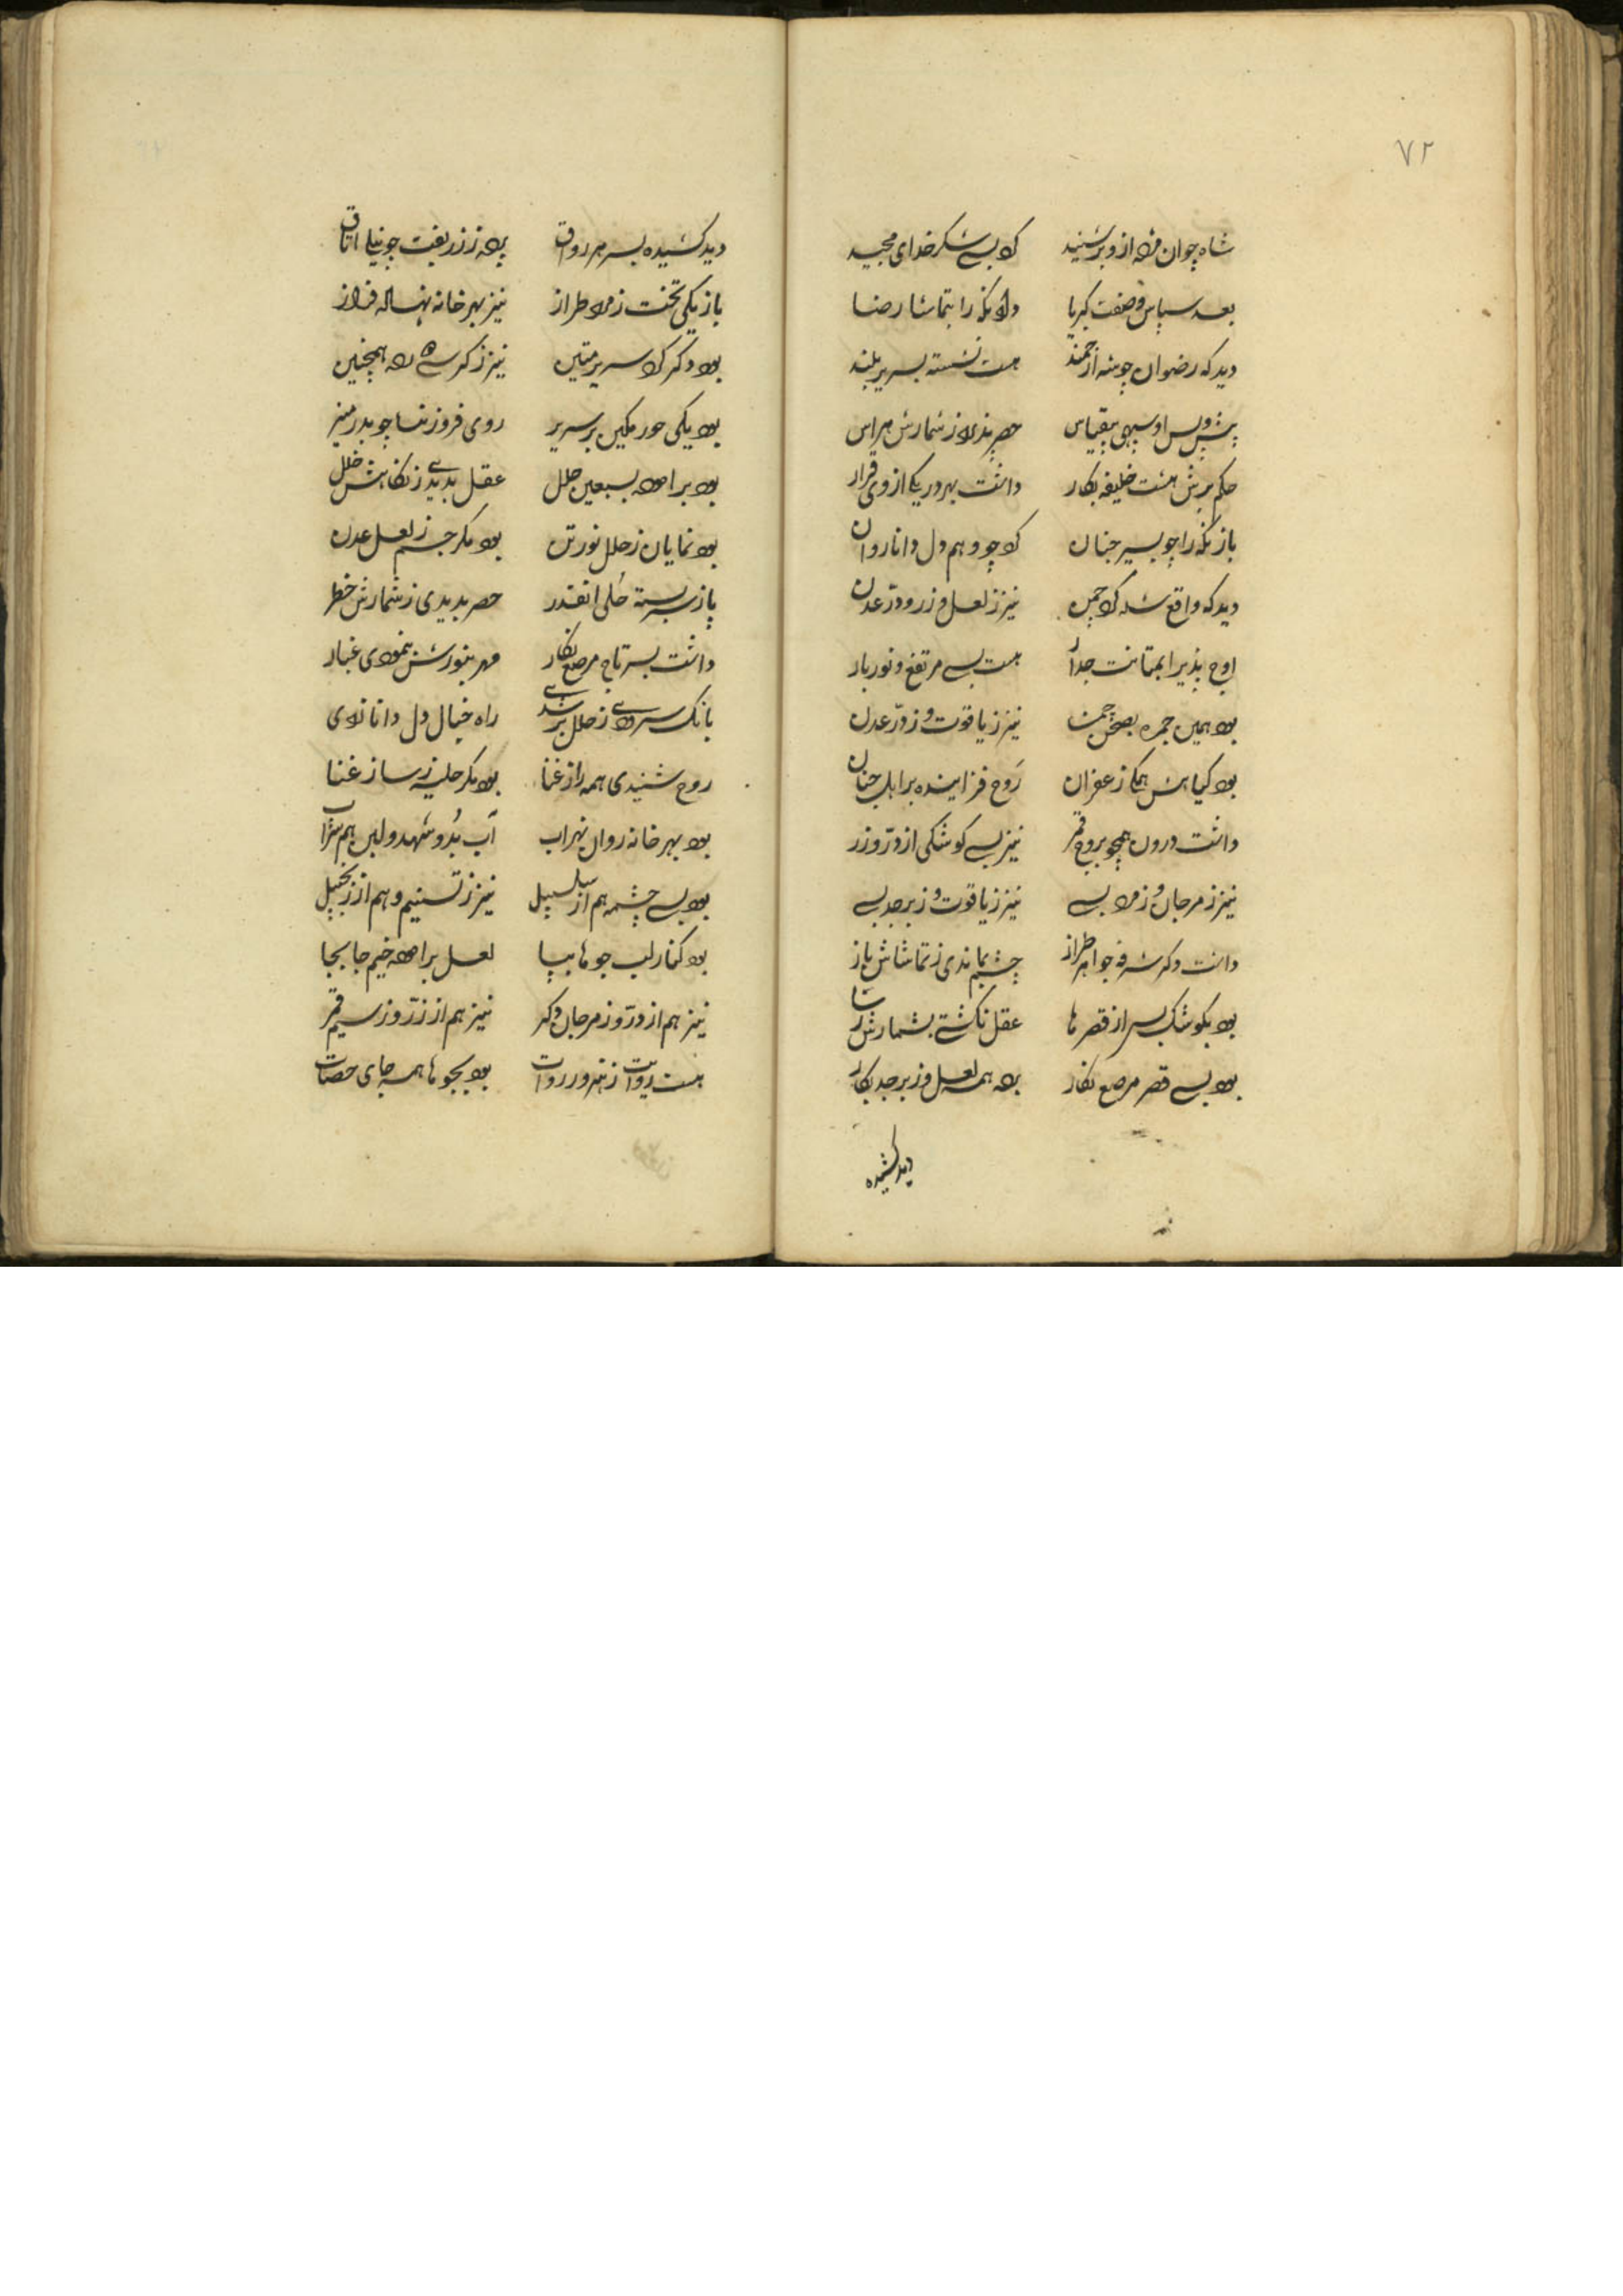 ٧٢
شاه چوان مژده ازو بر شنید کرد بسی شکر خدای مجید
بعد سپاس و صفت کبریا داد نکه را بتماشا رضا
دید که رضوان چو شه ارجمند هست نشسته بسریر بلند
پیش و پس او سپهی بیقیاس حصر پذیرد ز شمارش هراس
حکم برش هشت خلیفه بکار داشت بهر در یکی از وی قرار
باز نکه را چو بسیر جنان کرد چو وهم دل دانا روان
دید که واقع شده کرد چمن نیز ز لعل و زر و در عدن
اوج پذیر ابمتانت جدار هست بسی مرتفع و نوربار
بود همین جمره بصحن چمن نیز ز یاقوت و ز در عدن
بود کیاهش همکی زعفران روح فزاینده بر اهل جنان
داشت درون همچو بروج قمر نیز بسی کوشکی از در و زر
نیز ز مرجان و زمرد بسی نیز ز یاقوت و زبرجد بسی
داشت دکر شرفه جواهر طراز چشم بماندی ز تماشاش باز
بود بکوشک بسر از قصرها عقل نکشتی بشمارش رسا
بود بسی قصر مرصع نکار برده همه لعل و زبرجد بکار
دید کشیده
دید کشیده بسر هر رواق پرده ز زربفت چو نیلی اتاق
باز یکی تخت زمرد طراز نیز بهر خانه نهاله فراز
بود دکر کرد سریر متین نیز ز کرسی رده همچنین
بود یکی حور مکین بر سریر روی فروزنده چو بدر منیر
بود برآموده بسبعین حلل عقل بدیدی ز نکاهش خلل
بود نمایان ز حلل نور تن بود مکر جسم ز لعل عدن
باز بسربسته حلی انقدر حصر بدیدی ز شمارش خطر
داشت بسر تاج مرصع نکار مهر بنورش بنمودی غبار
بانک سرودی ز حلل بر شدی راه خیال دل دانا زدی
روح شنیدی همه راز غنا بود مکر حلیه ز ساز غنا
بود بهر خانه روان نهر اب آب بد و شهد و لبن هم شراب
بود بسی چشمه هم از سلسبیل نیز ز تسنیم و هم از زنجبیل
بود کنار لب جوها بپا لعل برآموده خیم جابجا
نیز هم از در و ز مرجان دکر نیز هم از زر و ز سیم قمر
هست روایت ز هنرور روات بود بجوها همه جای حصات